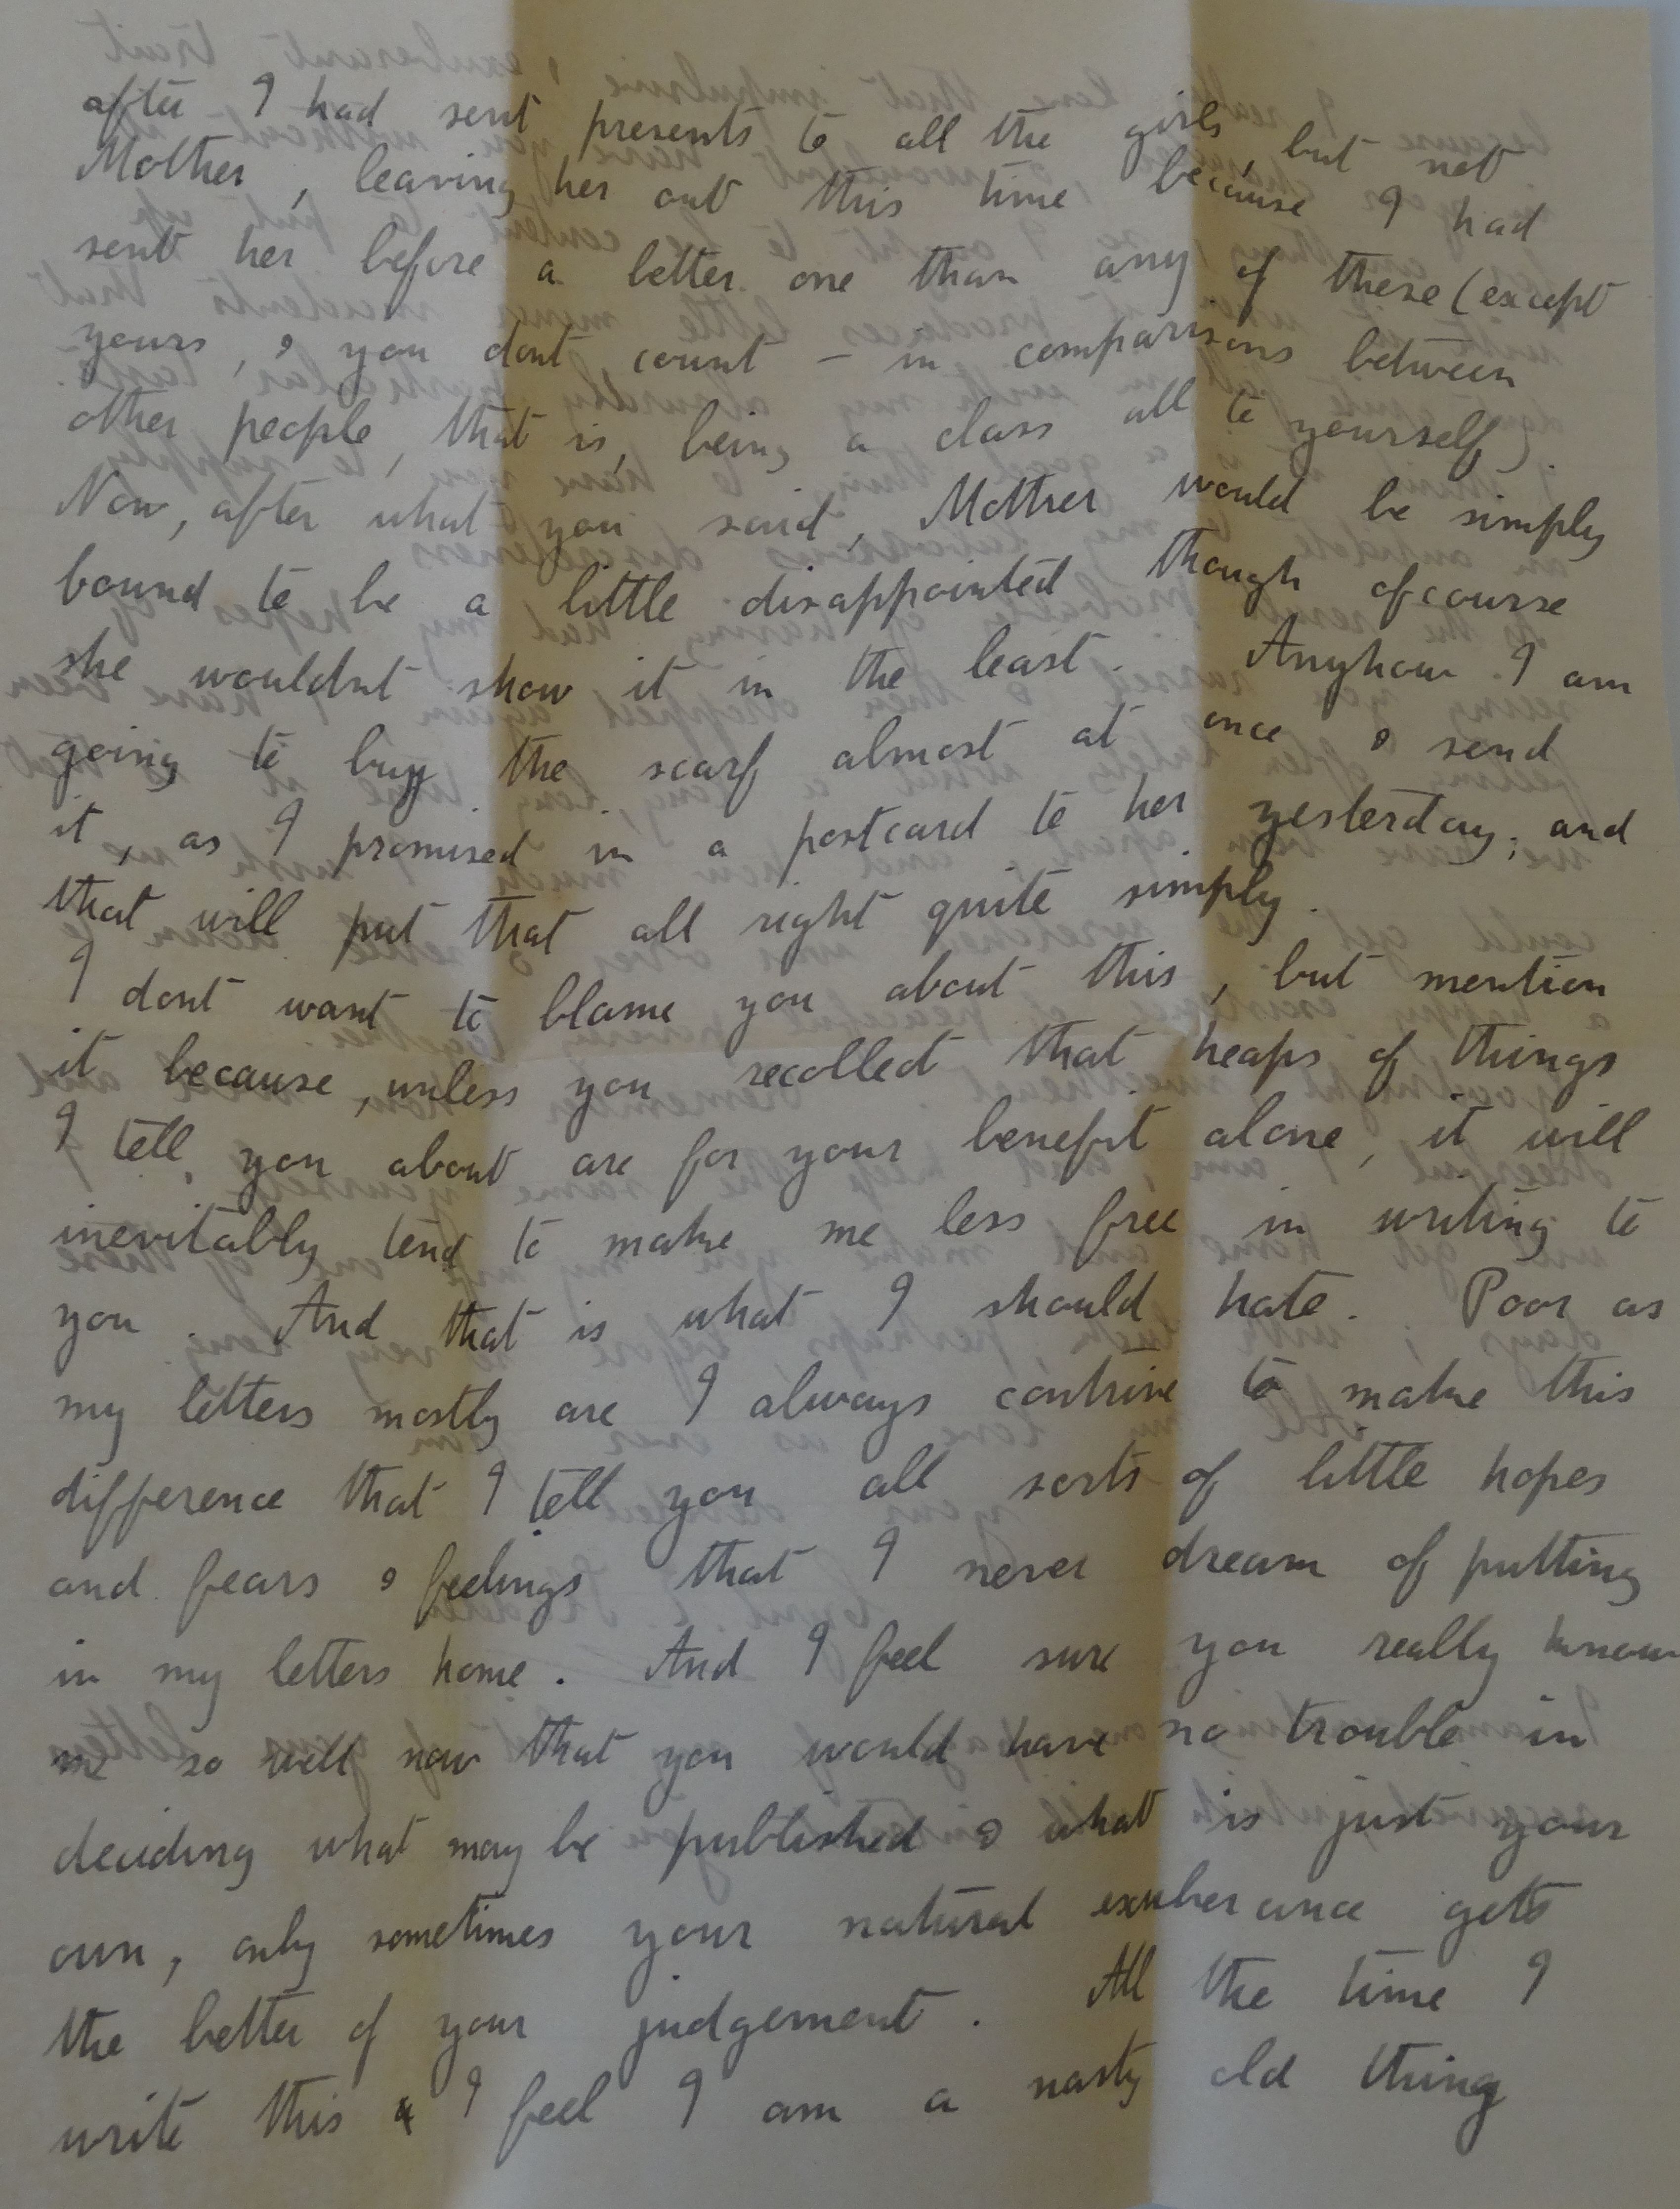 after I had sent presents to all the girls, but not
Mother, leaving her out this time because I had
sent her before a better one than any of these (except
yours, & you dont count – in comparisons between
other people, that is, being a class all to yourself).
Now, after what you said, Mother would be simply
bound to be a little disappointed though ofcourse
she wouldnt show it in the least. Anyhow I am
going to buy the scarf almost at once & send
it, as I promised in a postcard to her yesterday; and
that will put that all right quite simply.
I dont want to blame you about this, but mention
it because, unless you recollect that heaps of things
I tell you about are for your benefit alone, it will
inevitably tend to make me less free in writing to
you. And that is what I should hate. Poor as
my letters mostly are I always contrive to make this
difference that I tell you all sorts of little hopes
and fears & feelings that I never dream of putting
in my letters home. And I feel sure you really know
me so well now that you would have no trouble in
deciding what may be published & what is just your
own, only sometimes your natural exuberance gets
the better of your judgement. All the time I
write this I feel I am a nasty old thing